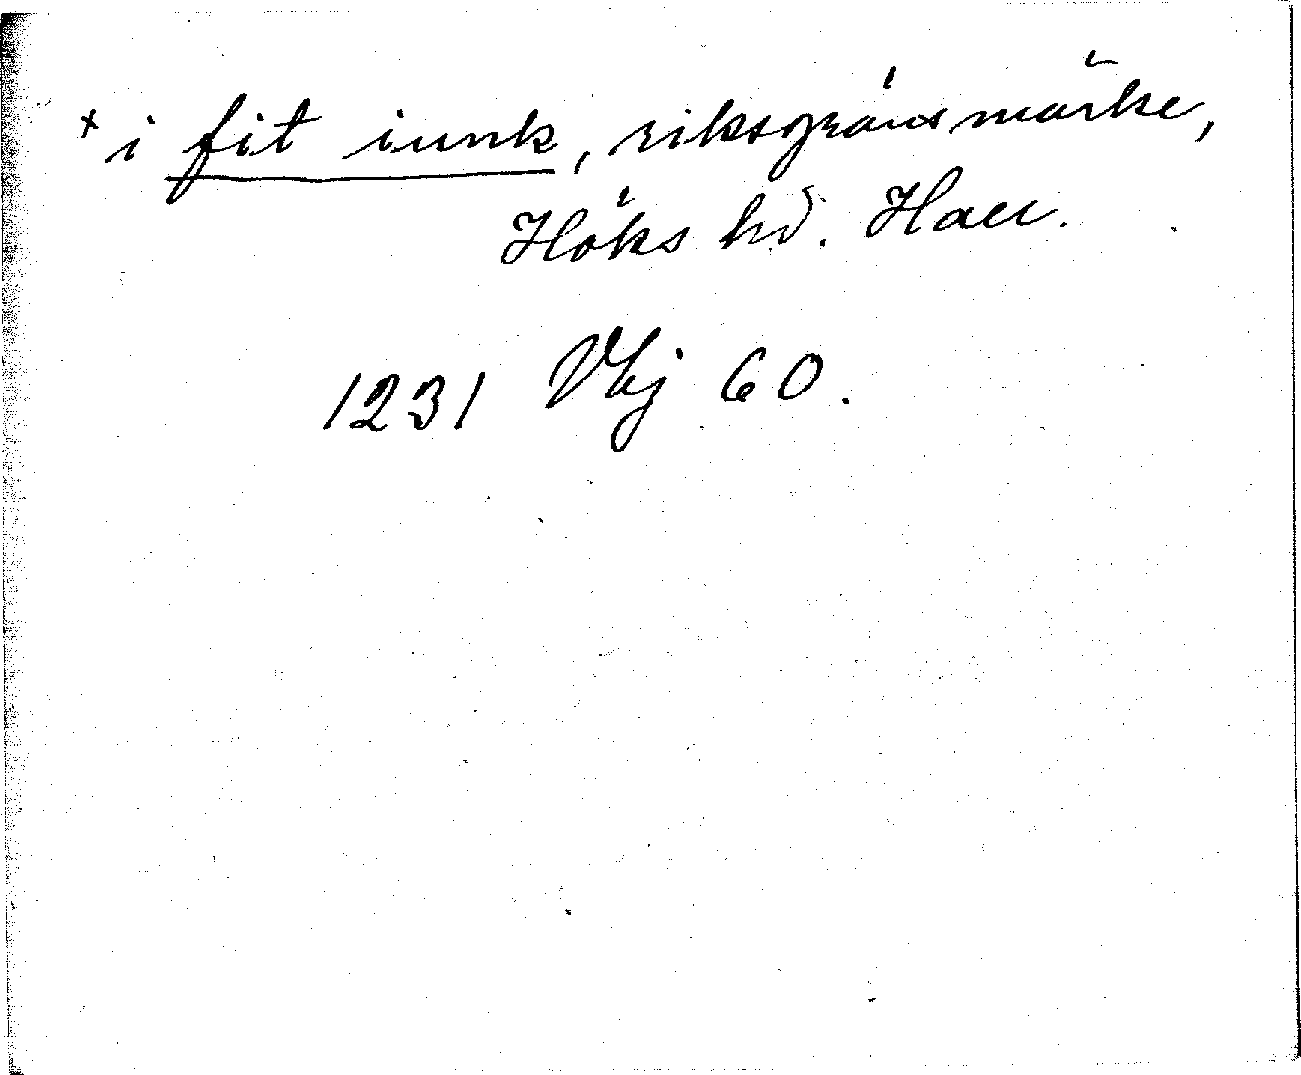 × i fit iunk, riksgränsmärke,
Höks hd. Hall.
1231 Vbj 60.